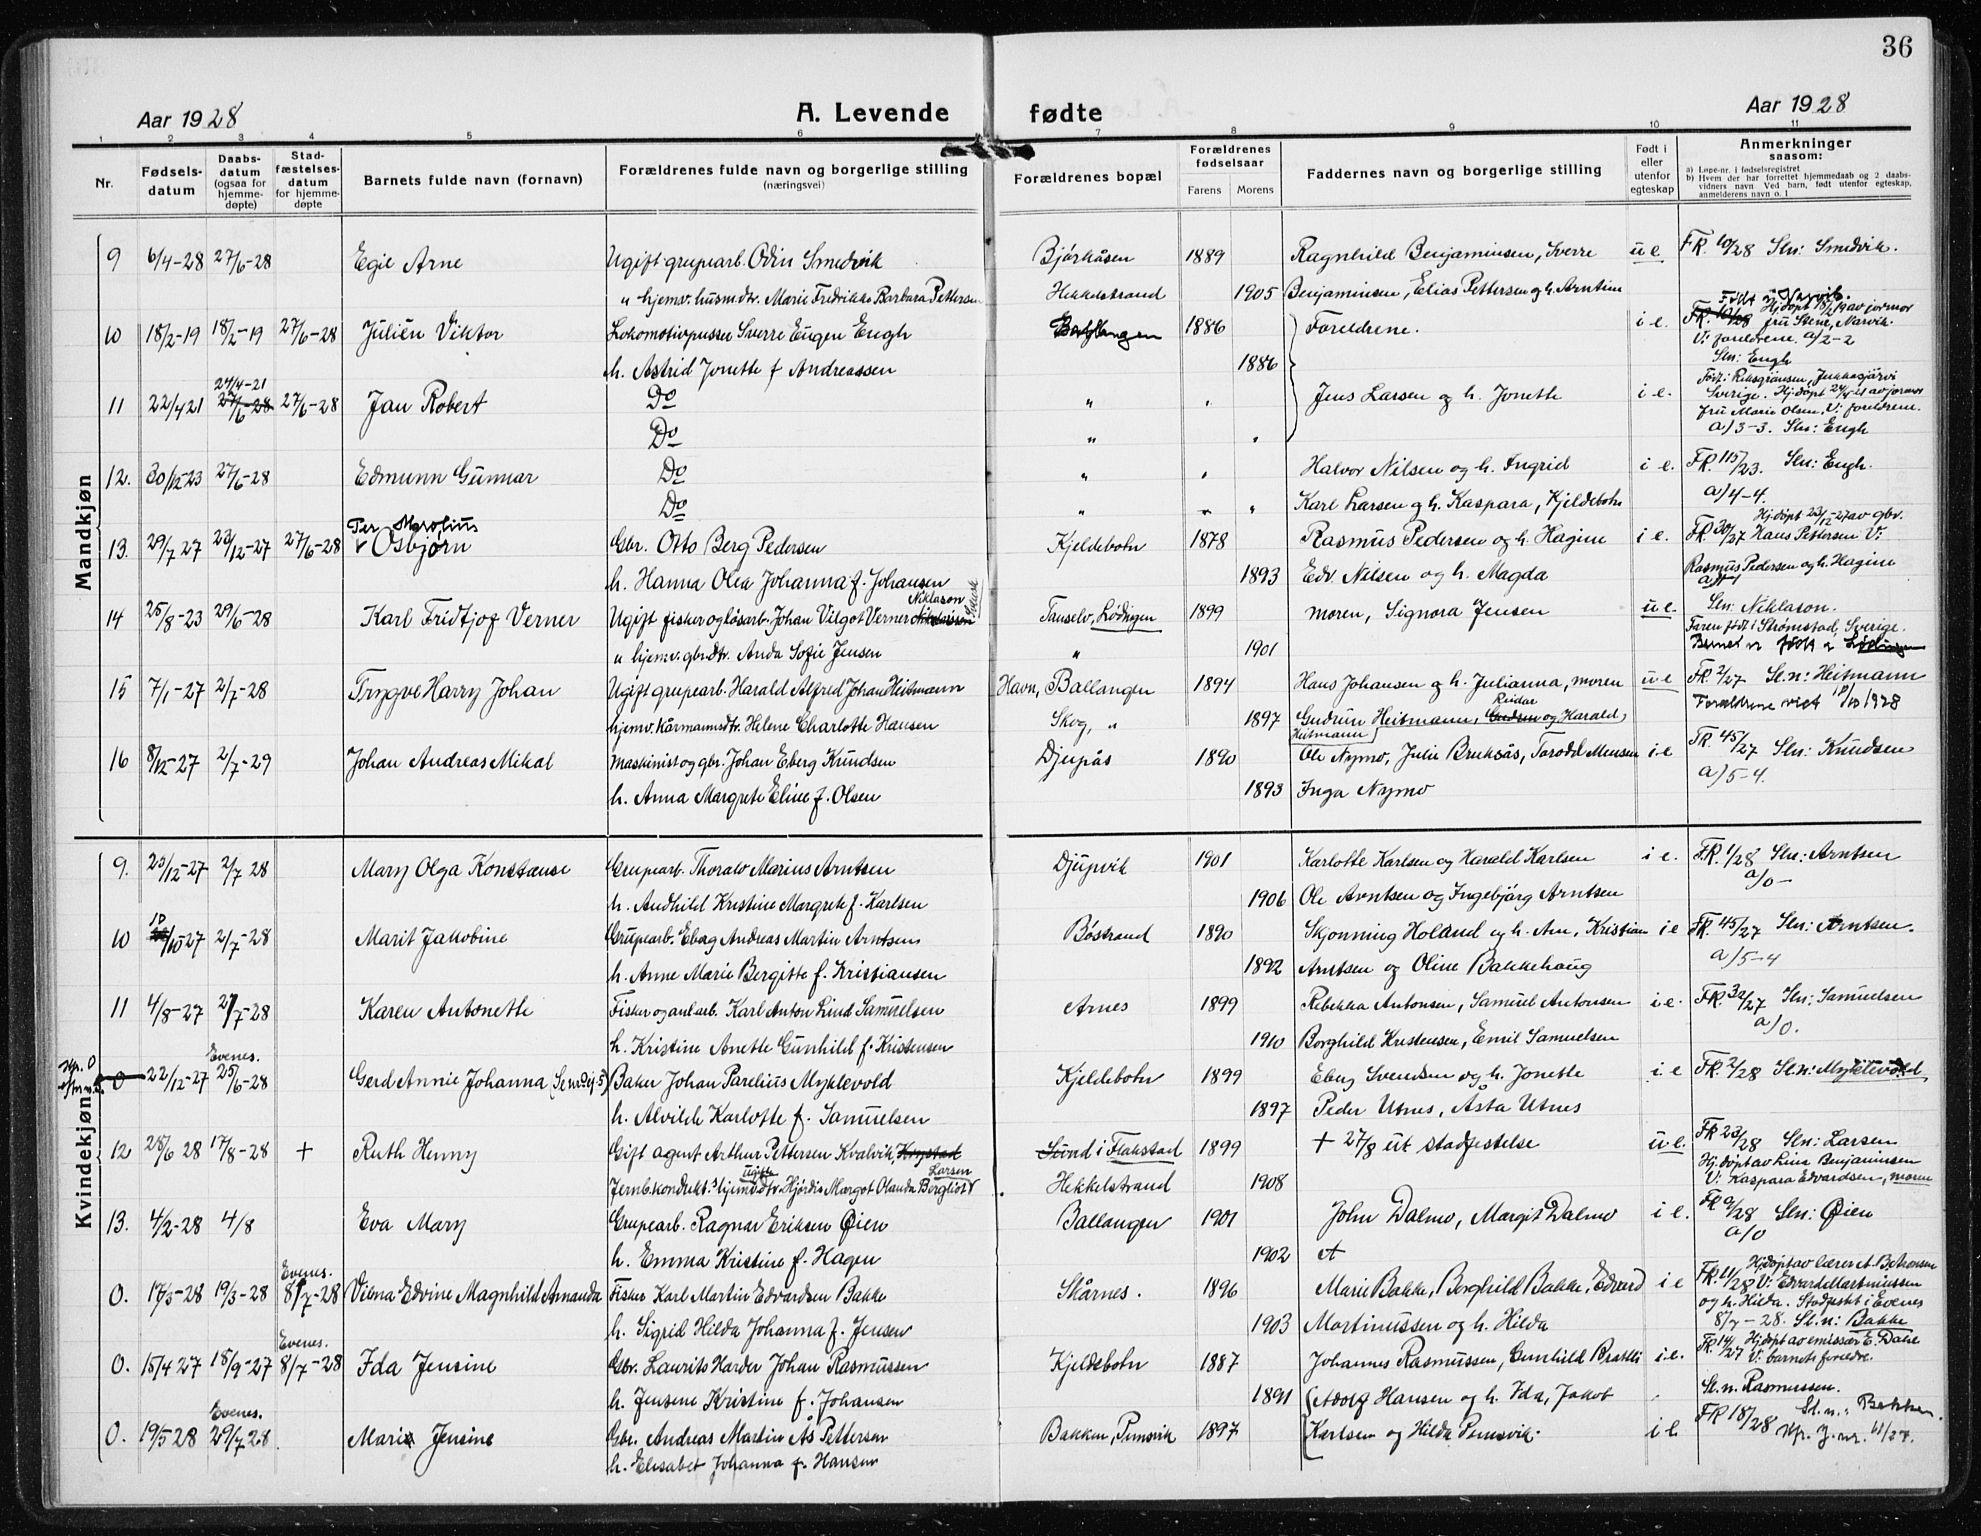 36
Aar 1928 A. Levende fødte Aar 1928
1 2 3 4 5 6 7 8 9 10 11
Nr. Fødsels-datum Daabs-datum (ogsaa for hjemme-døpte) Stad-fæstelses-datum for hjemme-døpte Barnets fulde navn (fornavn) Forældrenes fulde navn og borgerlige stilling (næringsvei) Forældrenes bopæl Forældrenes fødselsaar Farens Morens Faddernes navn og borgerlige stilling Født i eller utenfor egteskap Anmerkninger saasom:
a) Løpe-nr. i fødselsregistret
b) Hvem der har forrettet hjemmedaab og 2 daabs-vidners navn Ved barn, født utenfor egteskap, anmelderens navn o. l
Mandkjøn
9 6/4-28 27/6-28 Egil Arne Ugift grupearb. Odin Smedvik Bjørkåsen 1889 Ragnhild Benjaminsen, Sverre u e FR. 10/28 Sln: Smedvik.
" hjemv. husm.dtr. Marie Fredrikke Barbara Pettersen Hekkelstrand 1905 Benjaminsen, Elias Pettersen og h. Arntine
10 18/2-19 18/2-19 27/6-28 Julien Viktor Lokomotivpusser Sverre Eugen Engh Ballangen 1886 Foreldrene. i e. Født i Narvik. Hj.døpt 18/2 19 av jormor fru Stene, Narvik. V: foreldrene. a/2-2
h. Astrid Jonette f. Andreassen 1886 Sln: Engh
11 22/4 21 24/4-21 27/6-28 27/6-28 Jan Robert Do " " Jens Larsen og h. Jonette i e. Født i Riksgränsen, Jukkasjärvi Sverige. Hj.døpt 24/4 21 av jormor fru Marie Olsen, V: foreldrene.
Do " " a/3-3. Sln: Engh
12. 30/12-23 27/6-28 Edmunn Gunnar Do " " Halvor Nilsen og h. Ingrid i e. FR. 115/23. Sln: Engh.
Do " " " Karl Larsen og h. Kaspara, Kjeldebotn a/4-4.
13. 29/7 27 23/12-27 27/6-28 Per Marolius Osbjørn Gbr. Otto Berg Pedersen Kjeldebotn 1878 Rasmus Pedersen og h. Hagine i e. FR. 30/27 Hj.døpt 23/12-27 av gbr. Hans Pettersen V:
h. Hanna Olea Johanna f. Johansen 1893 Edv. Nilsen og h. Magda Rasmus Pedersen og h. Hagine
14 25/8-23 29/6-28 Karl Fridtjof Verner Ugift fisker og løsarb. Johan Vilgot Verner Niklason Svensk Tanselv, Lødingen 1899 moren, Signora Jensen u e. Sln: Niklason. Faren født i Strømstad, Sverige.
u hjemv. gbrdtr. Anda Sofie Jensen " 1901 Barnet er født i Lødingen
15 7/1-27 2/7-28 Trygve Harry Johan Ugift grupearb. Harald Alfred Johan Heitmann Havn, Ballangen 1894 Hans Johansen og h. Julianna, moren u e FR. 2/27 Sln: Heitmann
hjemv. kårmannsdtr. Helene Charlotte Hansen Skog, " 1897 Gudrun Heitmann, Reidar Gudrun og Harald Heitmann Forældrene viet 18/10 1928
16 8/12-27 2/7-29 Johan Andreas Mikal Maskinist og gbr. Johan Eberg Knudsen Djupås 1890 Ole Nymo, Julie Bruksås, Torodd Monsen i e FR. 45/27 Sln: Knudsen
h. Anna Margrete Eline f. Olsen 1893 Inga Nymo a/5-4.
Kvindekjøn
9. 25/12-27 2/7 28 Mary Olga Konstanse Grupearb. Thoralv Marius Arntsen Djupvik 1901 Karlotte Karlsen og Harald Karlsen i e. FR. 1/28 Sln: Arntsen
h. Audhild Kristine Margrete f. Karlsen 1906 Ole Arntsen og Ingebjørg Arntsen a/0-
10 18/10-27 2/7-28 Marit Jakobine Grupearb. Eberg Andreas Martin Arntsen Bøstrand 1890 Skjonning Holand og h. Ane, Kristian i e FR. 45/27 Sln: Arntsen.
h. Anne Marie Bergitte f. Kristiansen 1892 Arntsen og Oline Bakkehaug a/5-4
11 4/8-27 2/7-28 Karen Antonette Fisker og anl.arb. Karl Anton Lind Samuelsen Arnes 1899 Rebekka Antonsen, Samuel Antonsen i e. FR. 32/27 Sln: Samuelsen
h. Kristine Anette Gunhild f. Kristensen 1910 Borghild Kristensen, Emil Samuelsen a/0.
0 22/12-27 Evenes. 25/6-28 Gerd Annie Johanna Baker Johan Parelius Myklevold Kjeldebotn 1899 Eberg Svendsen og h. Jonette i e FR. 2/28 Sln: Myklevold
h. Alvilde Karlotte f. Samuelsen 1897 Peder Utnes, Åsta Utnes
12 28/6 28 17/8-28 + Ruth Henny Gift agent Arthur Pettersen Kvalvik, Krystad Sund i Flakstad 1899 + 27/8 ut stadfestelse u e. FR 23/28 Sln: Larsen Hj.døpt av Lina Benjaminsen
Jernb.kondukt.s ugifte hjemv. dtr. Hjördis Margot Olanda Bergliot Larsen Hekkelstrand 1908 V: Kaspara Edvardsen, moren
13. 4/2-28 4/8 Eva Mary Grupearb. Ragnar Eriksen Øien Ballangen 1901 John Dalmo, Margit Dalmo i e. FR 9/28 Sln: Øien
h. Emma Kristine f. Hagen 1902 a/0
0. 17/3-28 19/3-28 Evenes. 8/7-28 Vilma Edvine Magnhild Amanda Fisker Karl Martin Edvardsen Bakke Skårnes. 1896 Marie Bakke, Borghild Bakke, Edvard i e FR. 11/28 Hj.døpt av lærer A. Petersen V: Edvard Martinussen
h. Sigrid Hilda Johanna f. Jensen 1903 Martinussen og h. Hilda og h. Hilda. Stadfestet i Evenes 8/7-28. Sl.n: Bakke
0. 15/4 27 18/9-27 Evenes. 8/7-28 Ida Jensine Gbr. Laurits Harder Johan Rasmussen Kjeldebotn 1887 Johannes Rasmussen, Gunhild Bratli i e. FR. 14/27 Hj.døpt av emissær E. Dahl V: barnets foreldre.
h. Jensine Kristine f. Johansen 1891 Adolf Hansen og h. Ida, Jakob Sl.n. Rasmussen.
0. 19/5 28 Evenes. 29/7 28 Marie Jensine Gbr. Andreas Martin Ås Pettersen Bakken, Punsvik 1897 Karlsen og Hilda Punsvik. i e. FR 18/28 Sl.n. Bakken.
h. Elisabet Johanna f. Hansen